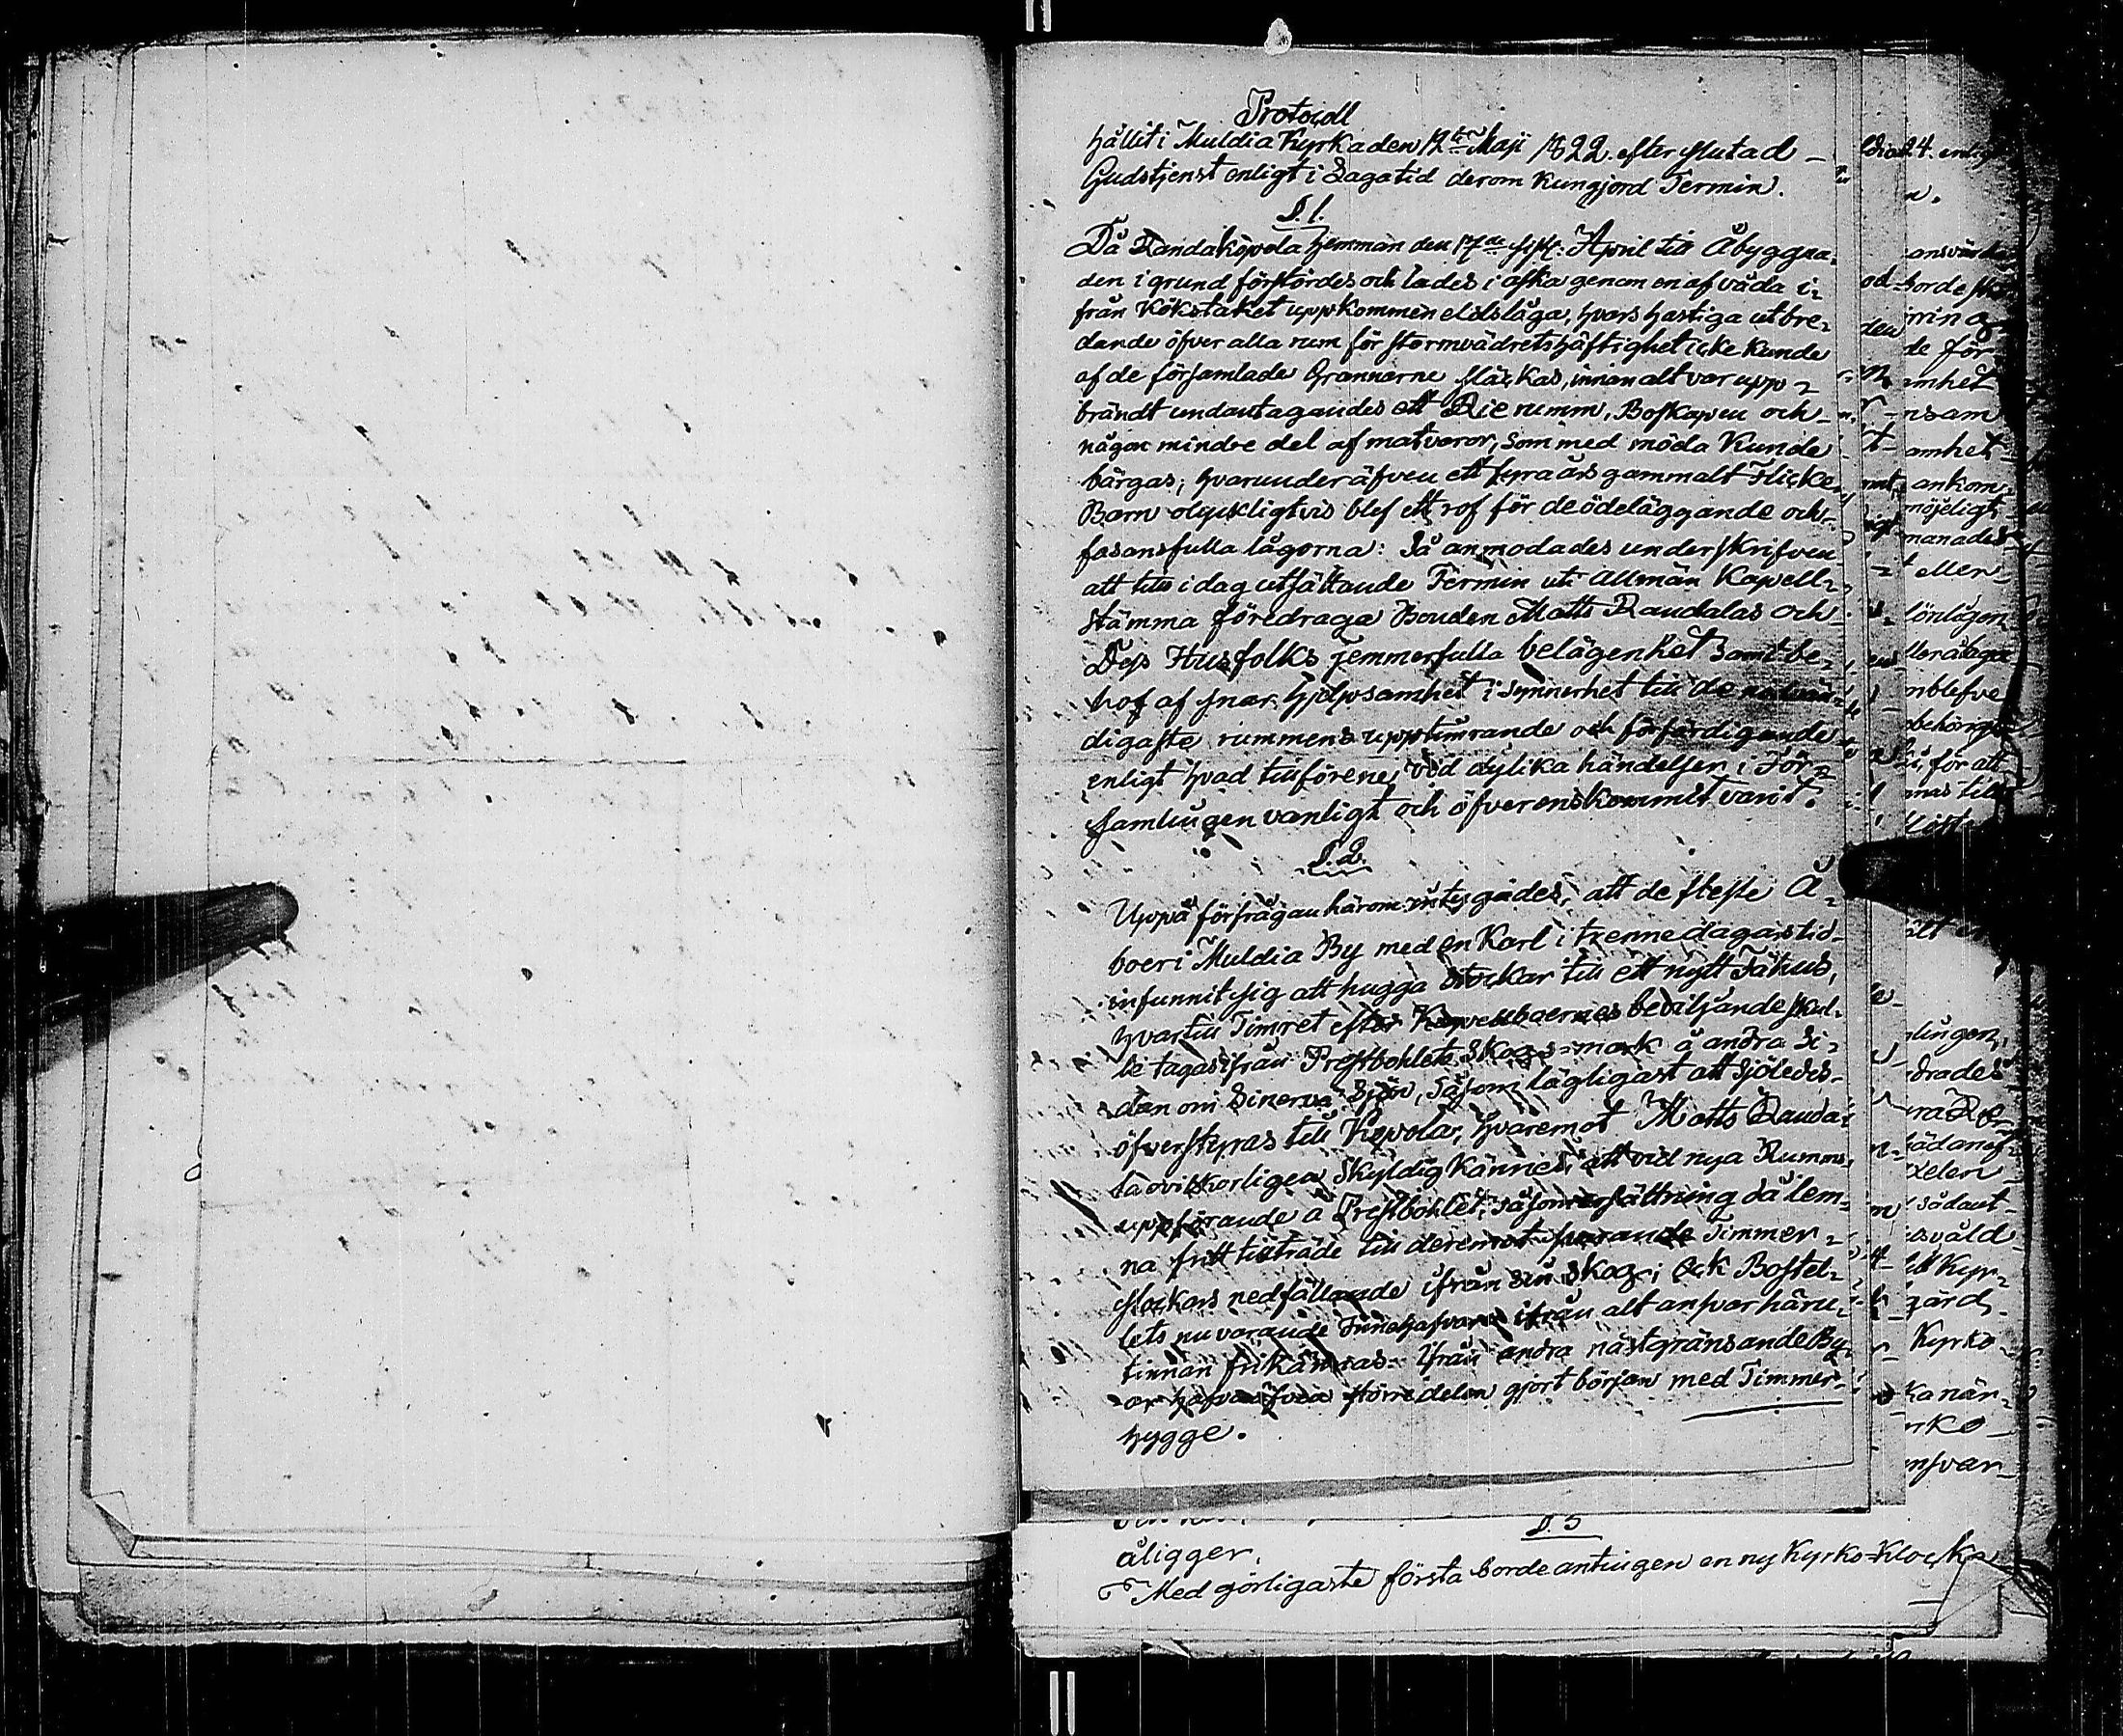 Protocoll
hållit i Muldia Kyrka den 12te Maji 1822 efter slutad
Gudstjenst enligt i Lagatid derom kungjord Termin.
§. 1.
Då Randakopola hemman den 17de sistl: April till Åbyggna-
den i grund förstördes och lades i aska genom en af våda i-
från Kökstaket uppkommen eldslåga, hvars hastiga utbre-
dande öfver alla rum för stormvädrets häftighet icke kunde
af de församlade Grannarne släckas, innan alt var upp-
brändt undantagandes ett Rie rumm, Boskapen och
någon mindre del af matvaror, som med möda kunde
bärgas; hvarunder äfven ett fyra års gammalt Flicke
Barn olyckligtvis blef ett rof för de ödeläggande och
fasansfulla lågorna: Så anmodades underskrifven
att till i dag utsättande Termin uti Allmän Kapell-
stämma föredraga Bonden Matts Raudalas och
Dess Husfolks jemmerfulla belägenhet samt be-
hof af snar hjelpsamhet i synnerhet till de nödvän-
digaste rummens upptimrande och förfärdigande
enligt hvad tillförene vid dylika händelser i För-
samlingen vanligt och öfverenskommit varit.
§. 2.
Uppå förfrågan härom intygades, att de fleste Å-
boer i Muldia By med en Karl i trenne dagars tid
infunnit sig att hugga Stockar till ett nytt Fähus,
hvartill Timret efter Kapellboernes beviljande skul-
le tagas ifrån Prestbohlets Skogs-mark å andra Si-
dan om Sinerva Sjön, såsom lägligast att Sjöledes
öfverstyras till Kopola, hvaremot Matts Rauda-
la ovilkorligen skyldig kännes, att vid nya Rumms
uppförande å Prestbohlet, såsom ersättning då lem-
na fritt tillträde till deremot svarande Timmer-
stockars nedfällande ifrån sin skog; Ock Bostel-
lets nuvarande Innehafvare ifrån alt ansvar häru-
tinnan frikännas. Ifrån andra nästgränsande By-
ar hafva äfven större delen gjort början med Timmer-
hygge.
§. 5
åligger.
Med görligaste första borde antingen en ny Kyrko-Klocka